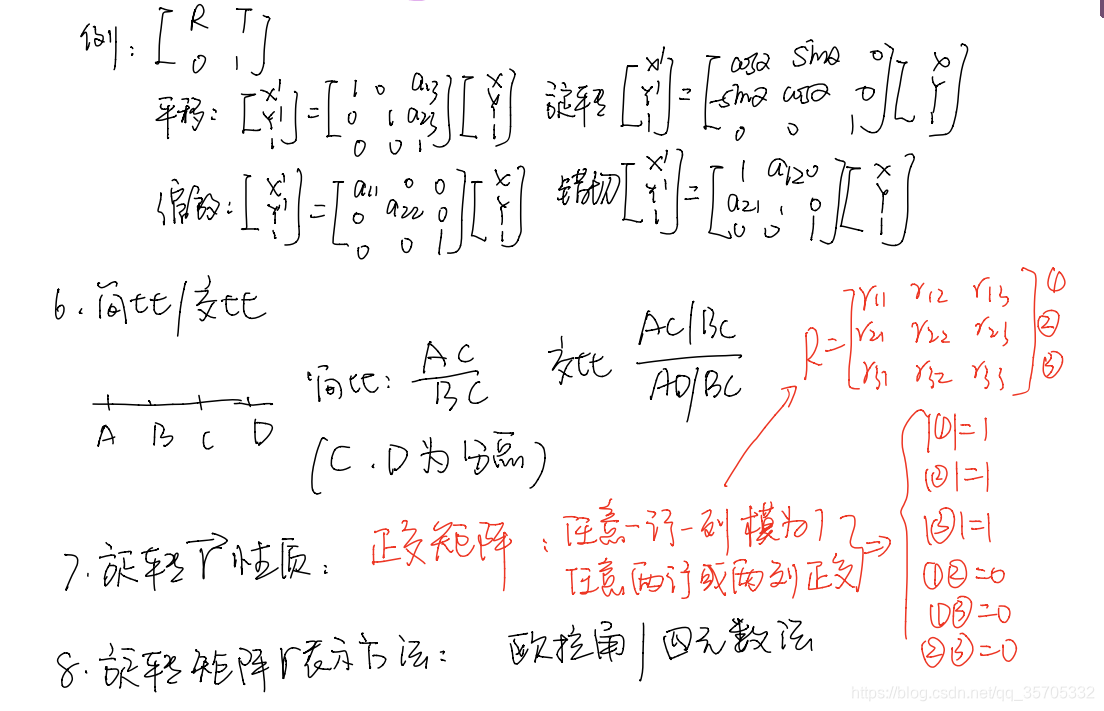 例: [R T; 0 1]
平移: [X'; Y'; 1] = [1 0 a13; 0 1 a23; 0 0 1] [X; Y; 1]
旋转 [X'; Y'; 1] = [cosα sinα 0; -sinα cosα 0; 0 0 1] [X; Y; 1]
缩放: [X'; Y'; 1] = [a11 0 0; 0 a22 0; 0 0 1] [X; Y; 1]
错切 [X'; Y'; 1] = [1 a12 0; a21 1 0; 0 0 1] [X; Y; 1]
6. 简比/交比
A B C D
简比: AC/BC
交比 (AC/BC)/(AD/BC)
(C、D为分点)
R = [r11 r12 r13; r21 r22 r23; r31 r32 r33] ① ② ③
7. 旋转r性质:
正交矩阵: 任意一行一列模为1
任意两行或两列正交
⇒
|①|=1
|②|=1
|③|=1
①②=0
①③=0
②③=0
8. 旋转矩阵r表示方法: 欧拉角/四元数法
https://blog.csdn.net/qq_35705332